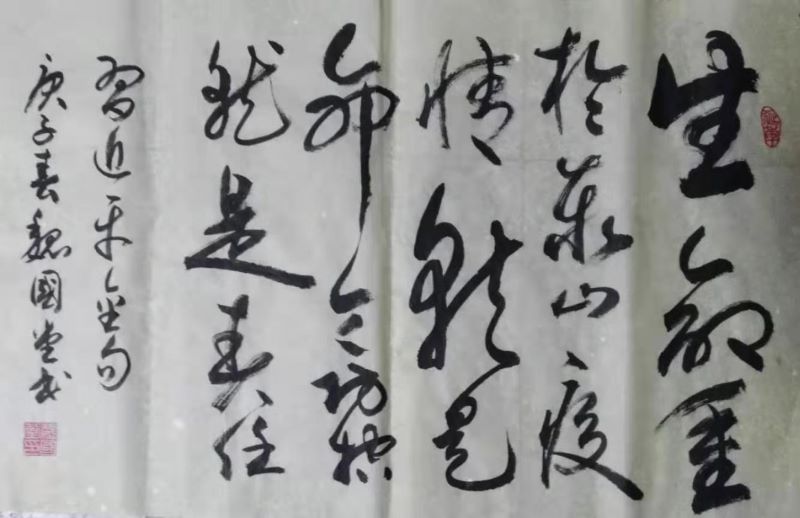 生命重
於泰山疫
情就是
命令防控
就是责任
習近平金句
庚子春魏國堂书